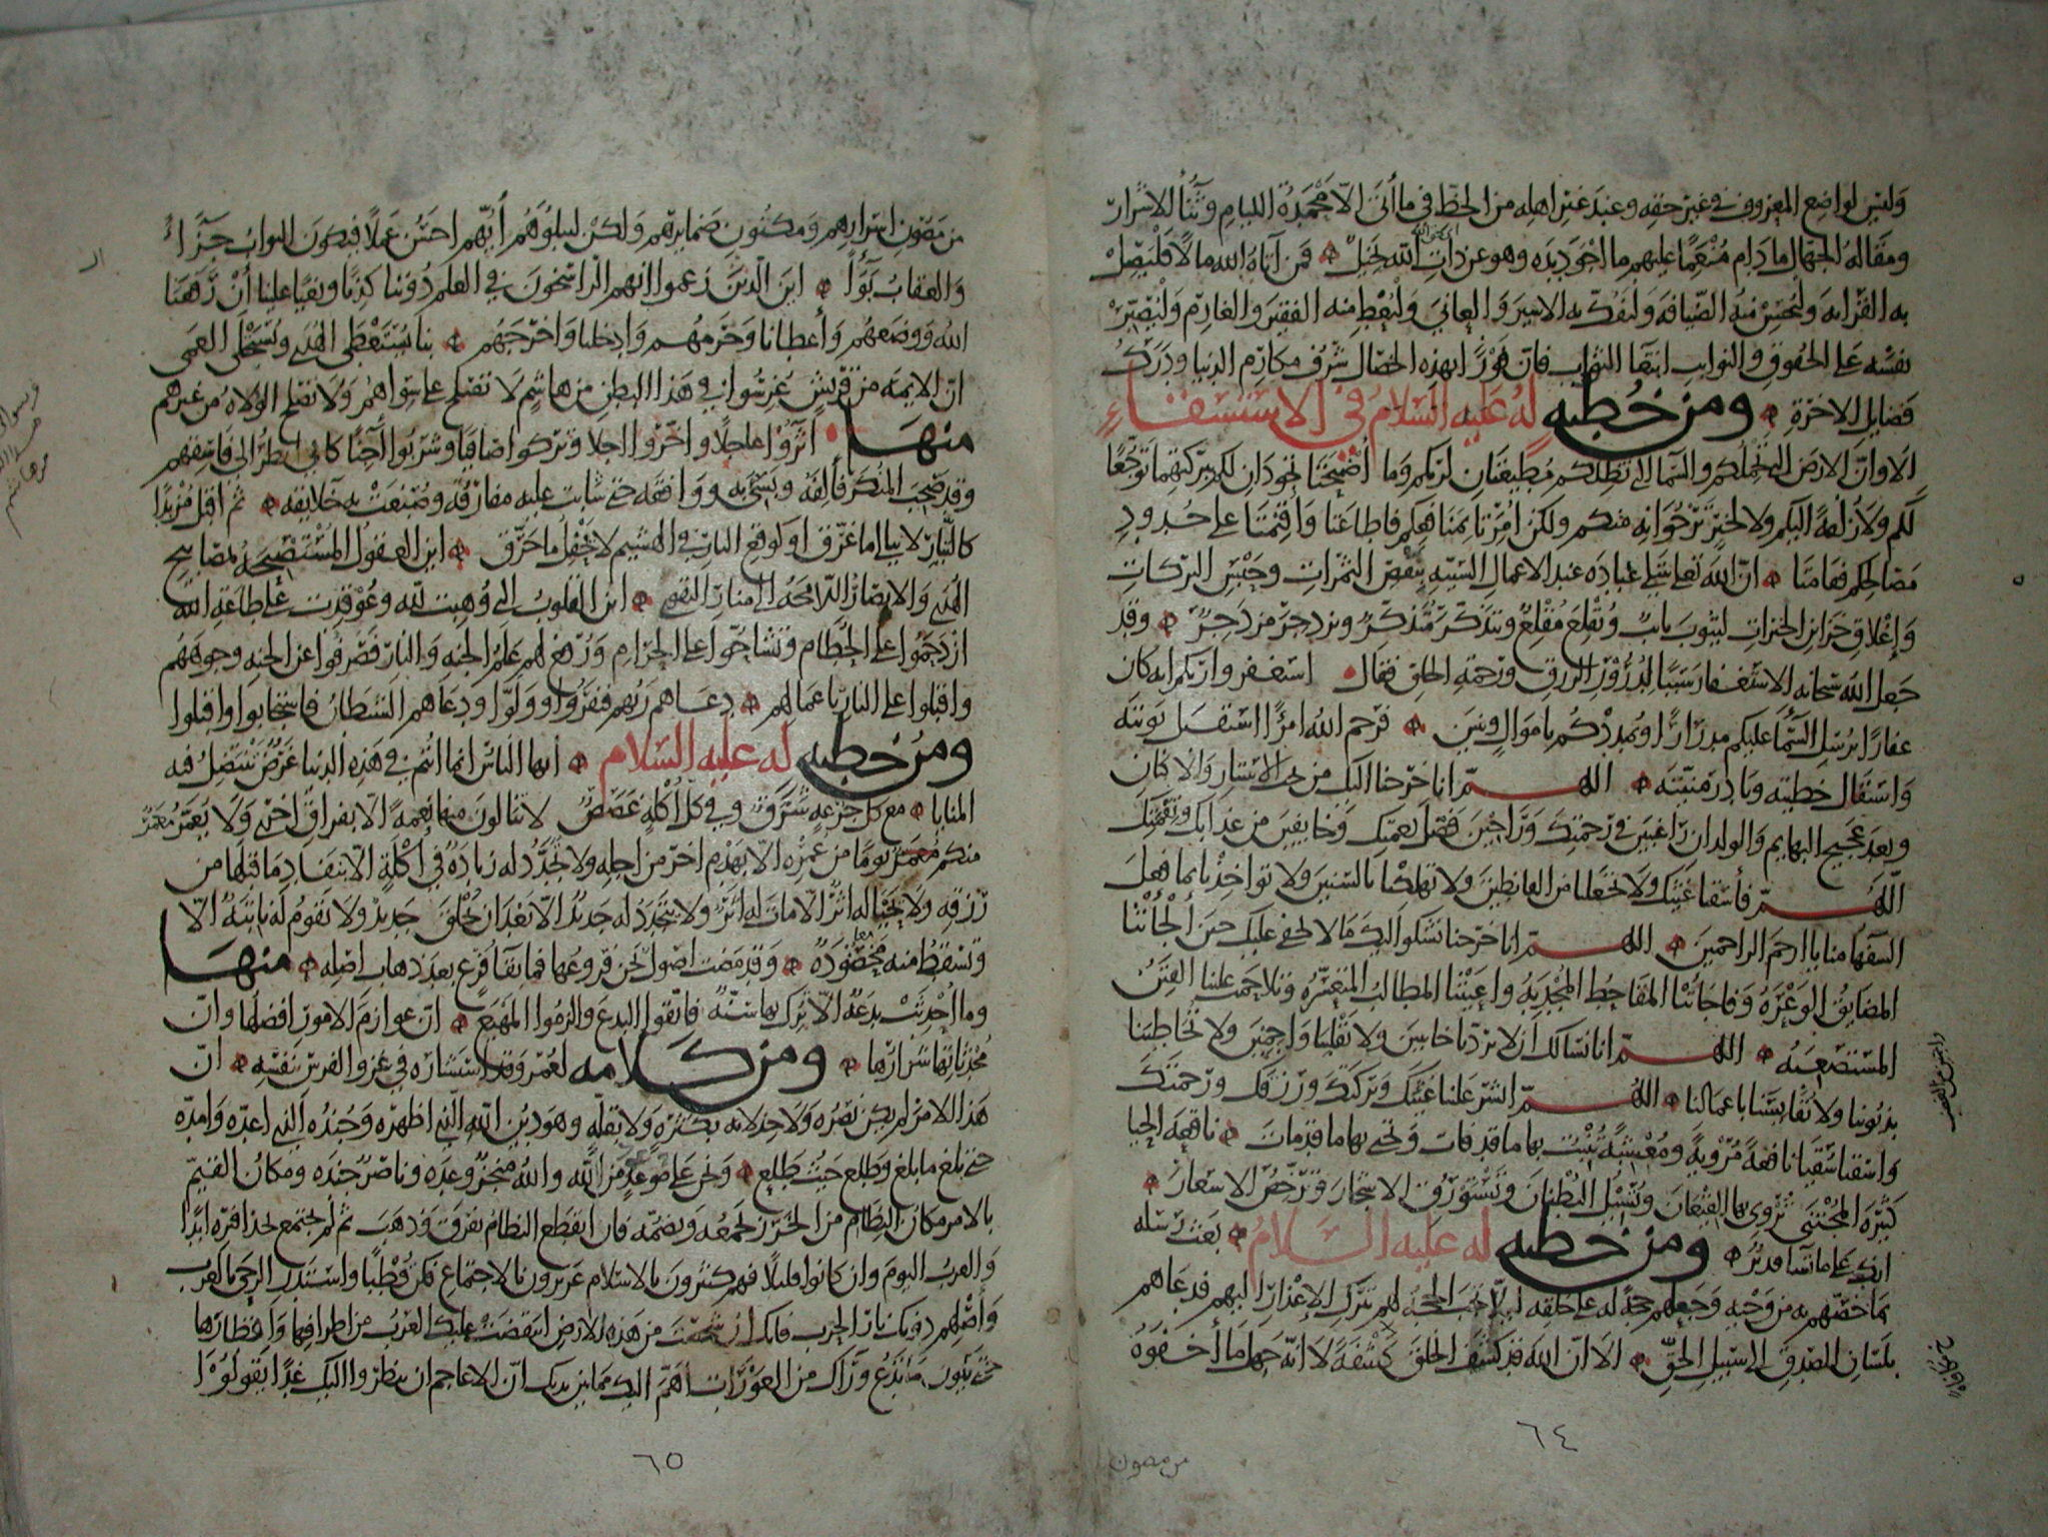 وليس لواضع المعروف في غير حقه وعند غير اهله من الحظ في ما أتى الا محمدة اللئام وثناء الاشرار
ومقالة الجهال ما دام منعما عليهم ما اجود يده وهو عن ذات الله بخيل فمن آتاه الله مالا فليصل
به القرابه وليحسن منه الضيافه وليفك به الاسير والعاني وليعط منه الفقير والغارم وليصبر
نفسه على الحقوق والنوايب ابتغا الثواب فان فوزا بهذه الخصال شرف مكارم الدنيا ودرك
فضايل الاخرة ومن خطبه له عليه السلام في الاستسقاء
الا وان الارض التي تحملكم والسما التي تظلكم مطيعتان لربكم وما اصبحتا تجودان لكم ببركتهما توجعا
لكم ولا زلفة اليكم ولا لخير ترجوانه منكم ولكن امرتا بمنافعكم فاطاعتا واقيمتا على حدود
مصالحكم فقامتا ان الله تعالى يبتلي عباده عند الاعمال السيئه بنقص الثمرات وحبس البركات
وإغلاق خزاين الخيرات ليتوب تايب ويقلع مقلع ويتذكر متذكر ويزدجر مزدجر وقد
جعل الله سبحانه الاستغفار سببا لدرور الرزق ورحمة الخلق فقال استغفروا ربكم انه كان
غفارا يرسل السما عليكم مدرارا ويمددكم باموال وبنين فرحم الله امرءا استقبل توبته
واستقال خطيته وبادر منيته اللهم انا خرجنا اليك من تحت الاستار والاكنان
وبعد عجيج البهايم والولدان راغبين في رحمتك وراجين فضل نعمتك وخايفين من عذابك ونقمتك
اللهم فأسقنا غيثك ولا تجعلنا من القانطين ولا تهلكنا بالسنين ولا تواخذنا بما فعل
السفها منا يا ارحم الراحمين اللهم انا خرجنا نشكوا اليك ما لا يخفى عليك حين ألجأتنا
المضايق الوعره وفاجأتنا المقاحط المجدبه واعيتنا المطالب المتعسره وتلاحمت علينا الفتن
المستصعبه اللهم انا نسالك ان لا تردنا خايبين ولا تقلبنا واجمين ولا تخاطبنا
بذنوبنا ولا تقايسنا باعمالنا اللهم انشر علينا غيثك وبركتك ورزقك ورحمتك
واسقنا سقيا نافعة مروية ومعشبة تنبت بها ما قد فات وتحيي بها ما قد مات ناقعة الحيا
كثيرة المجتنى تروي بها القيعان وتسيل البطنان وتستورق الاشجار وترخص الاسعار
انك على ما تشا قدير ومن خطبه له عليه السلام بعث رسله
بما خصهم به من وحيه وجعلهم حجة له على خلقه ليلا تجب الحجه لهم بترك الاعذار اليهم فدعاهم
بلسان الصدق الى سبيل الحق الا ان الله قد كشف الخلق كشفة لا انه جهل ما أخفوه
٦٤
من مصون
من مصون اسرارهم ومكنون ضمايرهم ولكن ليبلوهم أيهم احسن عملا فيكون الثواب جزاء
والعقاب بواء اين الذين زعموا انهم الراسخون في العلم دوننا كذبا وبغيا علينا أن رفعنا
الله ووضعهم وأعطانا وحرمهم وادخلنا واخرجهم بنا يستعطى الهدى ويستجلى العمى
ان الايمه من قريش غرسوا في هذا البطن من هاشم لا تصلح على سواهم ولا تصلح الولاه من غيرهم
منها آثروا عاجلا واخروا آجلا وتركوا صافيا وشربوا آجنا كاني انظر الى فاسقهم
وقد صحب المنكر فألفه وبسئ به ووافقه حتى شابت عليه مفارقه وصبغت به خلايقه ثم اقبل مزبدا
كالتيار لا يبالي ما غرق او كوقع النار في الهشيم لا يحفل ما حرق اين العقول المستصبحه بمصابيح
الهدى والابصار اللامحه الى منار التقوى اين القلوب التي وهبت لله وعوقدت على طاعة الله
ازدحموا على الحطام وتشاحوا على الحرام ورفع لهم علم الجنه والنار فصرفوا عن الجنه وجوههم
واقبلوا على النار باعمالهم دعاهم ربهم فنفروا وولوا ودعاهم الشيطان فاستجابوا واقبلوا
ومن خطبه له عليه السلام أيها الناس انما انتم في هذه الدنيا غرض تنتضل فيه
المنايا مع كل جرعه شرق وفي كل أكلة غصص لا تنالون منها نعمة الا بفراق اخرى ولا يعمر معمر
منكم يوما من عمره الا بهدم اخر من اجله ولا تجدد له زيادة في أكلة الا بنفاد ما قبلها من
رزقه ولا يحيا له اثر الا مات له اثر ولا يتجدد له جديد الا بعد ان يخلق جديد ولا تقوم له نابتة الا
وتسقط منه محصودة وقد مضت اصول نحن فروعها فما بقا فرع بعد ذهاب اصله منها
وما احدثت بدعة الا ترك بها سنة فاتقوا البدع والزموا المهيع ان عوازم الامور افضلها وان
محدثاتها شرارها ومن كلامه لعمر وقد استشاره في غزو الفرس بنفسه ان
هذا الامر لم يكن نصره ولا خذلانه بكثرة ولا بقلة وهو دين الله الذي اظهره وجنده الذي اعده وامده
حتى بلغ ما بلغ وطلع حيث طلع ونحن على موعد من الله والله منجز وعده وناصر جنده ومكان القيم
بالامر مكان النظام من الخرز يجمعه ويضمه فان انقطع النظام تفرق وذهب ثم لم يجتمع بحذافيره ابدا
والعرب اليوم وان كانوا قليلا فهم كثيرون بالاسلام عزيزون بالاجتماع فكن قطبا واستدر الرحى بالعرب
وأصلهم دونك نار الحرب فانك ان شخصت من هذه الارض انتقضت عليك العرب من اطرافها واقطارها
حتى يكون ما تدع وراك من العورات اهم اليك مما بين يديك ان الاعاجم ان ينظروا اليك غدا يقولوا
٦٥